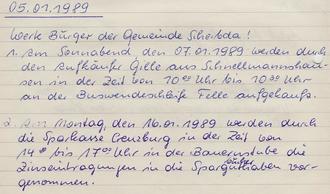 05.01.1989
Werte Bürger der Gemeinde Scherbda!
1. Am Sonnabend, den 07.01.1989 werden durch
den Aufkäufer Gille aus Schnellmannshau-
sen in der Zeit von 10 00 Uhr bis 10 30 Uhr
an der Buswendeschleife Felle aufgekauft.
2. Am Montag, den 16.01.1989 werden durch
die Sparkasse Creuzburg in der Zeit von
14 00 bis 17 00 Uhr in der Bauernstube die
Zinseintragungen in die Sparguthabenbücher vor-
genommen.